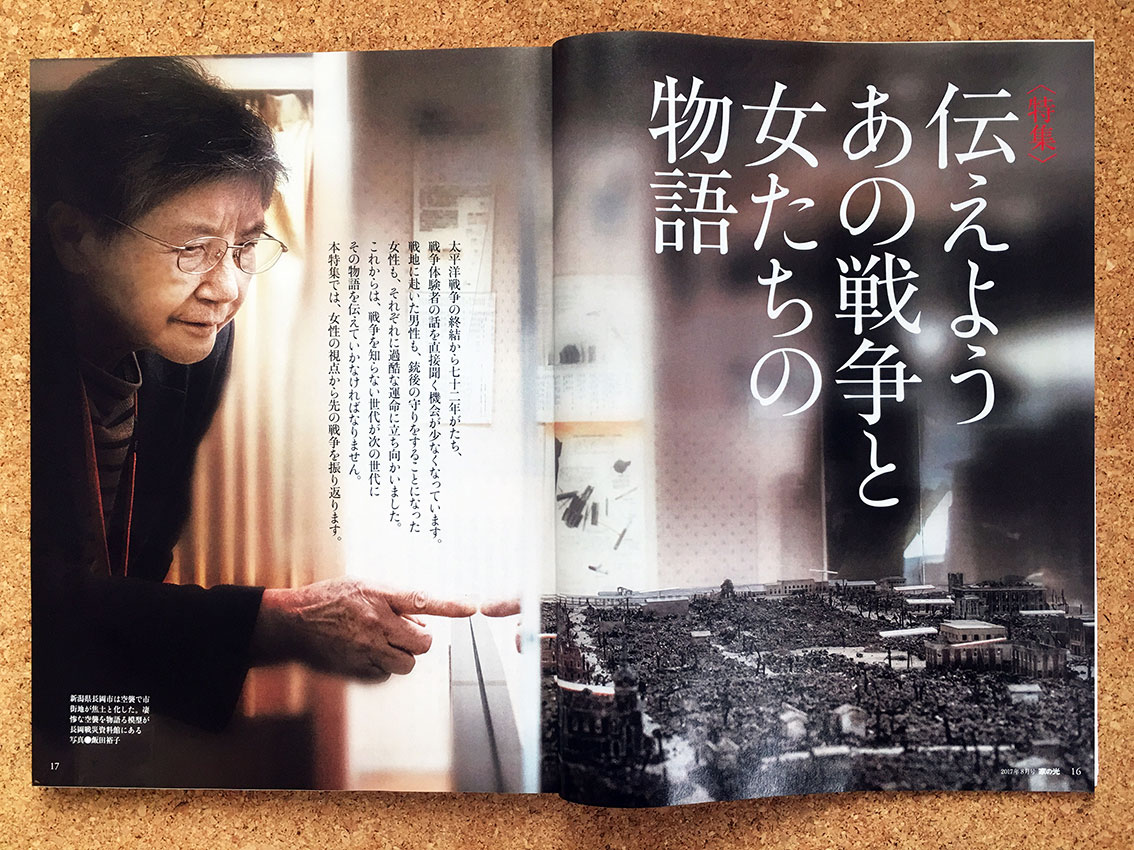 〈特集〉
伝えよう
あの戦争と
女たちの
物語
太平洋戦争の終結から七十二年がたち、
戦争体験者の話を直接聞く機会が少なくなっています。
戦地に赴いた男性も、銃後の守りをすることになった
女性も、それぞれに過酷な運命に立ち向かいました。
これからは、戦争を知らない世代が次の世代に
その物語を伝えていかなければなりません。
本特集では、女性の視点から先の戦争を振り返ります。
新潟県長岡市は空襲で市
街地が焦土と化した。凄
惨な空襲を物語る模型が
長岡戦災資料館にある
写真●飯田裕子
17
2017年8月号 家の光 16